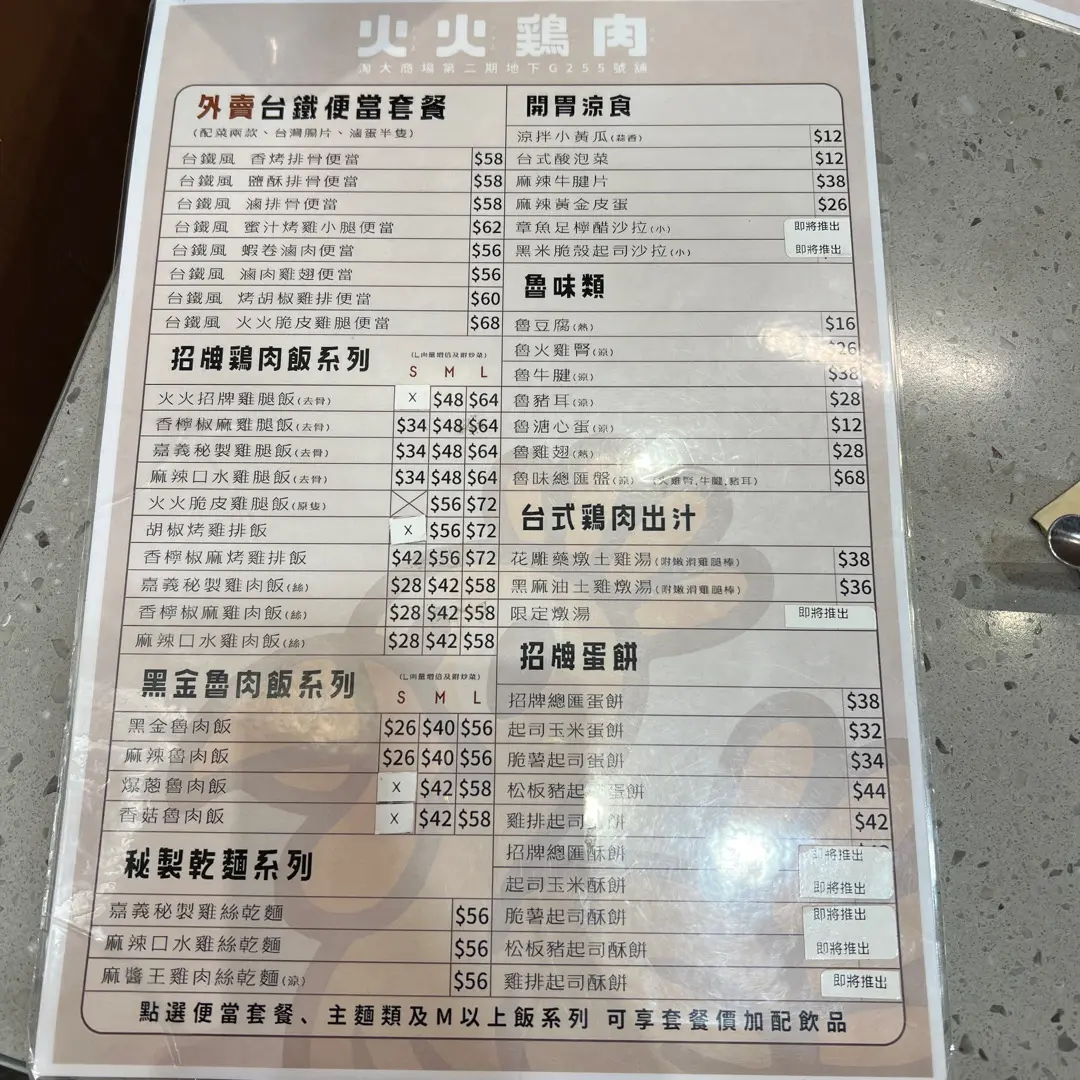 火火鶏肉
淘大商場第二期地下G255號舖
外賣台鐵便當套餐
(配菜兩款、台灣腸片、滷蛋半隻)
台鐵風 香烤排骨便當 $58
台鐵風 鹽酥排骨便當 $58
台鐵風 滷排骨便當 $58
台鐵風 蜜汁烤雞小腿便當 $62
台鐵風 蝦卷滷肉便當 $56
台鐵風 滷肉雞翅便當 $56
台鐵風 烤胡椒雞排便當 $60
台鐵風 火火脆皮雞腿便當 $68
招牌鶏肉飯系列 (L肉量增倍及附炒菜)
S M L
火火招牌雞腿飯(去骨) X $48 $64
香檸椒麻雞腿飯(去骨) $34 $48 $64
嘉義秘製雞腿飯(去骨) $34 $48 $64
麻辣口水雞腿飯(去骨) $34 $48 $64
火火脆皮雞腿飯(原隻) $56 $72
胡椒烤雞排飯 X $56 $72
香檸椒麻烤雞排飯 $42 $56 $72
嘉義秘製雞肉飯(絲) $28 $42 $58
香檸椒麻雞肉飯(絲) $28 $42 $58
麻辣口水雞肉飯(絲) $28 $42 $58
黑金魯肉飯系列 (L肉量增倍及附炒菜)
S M L
黑金魯肉飯 $26 $40 $56
麻辣魯肉飯 $26 $40 $56
爆蔥魯肉飯 X $42 $58
香菇魯肉飯 X $42 $58
秘製乾麵系列
嘉義秘製雞絲乾麵 $56
麻辣口水雞絲乾麵 $56
麻醬王雞肉絲乾麵(涼) $56
開胃涼食
涼拌小黃瓜(蒜香) $12
台式酸泡菜 $12
麻辣牛腱片 $38
麻辣黃金皮蛋 $26
章魚足檸醋沙拉(小) 即將推出
黑米脆殼起司沙拉(小) 即將推出
魯味類
魯豆腐(熱) $16
魯火雞腎(涼) $26
魯牛腱(涼) $38
魯豬耳(涼) $28
魯溏心蛋(涼) $12
魯雞翅(熱) $28
魯味總匯盤(涼) (火雞腎,牛腱,豬耳) $68
台式鶏肉出汁
花雕藥燉土雞湯(附嫩滑雞腿棒) $38
黑麻油土雞燉湯(附嫩滑雞腿棒) $36
限定燉湯 即將推出
招牌蛋餅
招牌總匯蛋餅 $38
起司玉米蛋餅 $32
脆薯起司蛋餅 $34
松板豬起蛋餅 $44
雞排起司餅 $42
招牌總匯酥餅 即將推出
起司玉米酥餅 即將推出
脆薯起司酥餅 即將推出
松板豬起司酥餅 即將推出
雞排起司酥餅 即將推出
點選便當套餐、主麵類及M以上飯系列 可享套餐價加配飲品